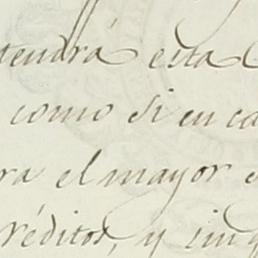 tendrá esta
como si en ca
ra el mayor
réditos, y sin